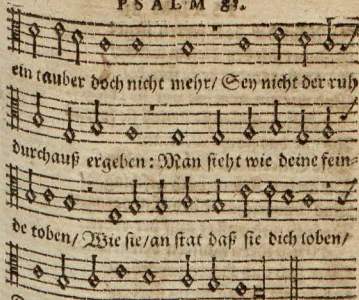 PSALM 83.
ein tauber doch nicht mehr/ Sey nicht der ruh
durchauß ergeben: Man sieht wie deine fein-
de toben/ Wie sie/an stat daß sie dich loben/